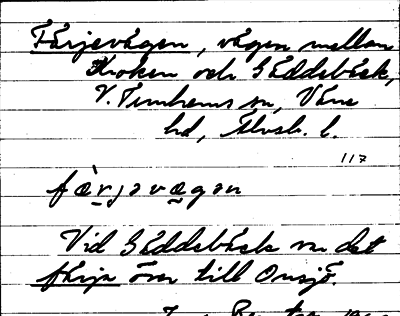 Färjevägen, vägen mellan
Kroken och Gäddebäck,
V. Tunhems sn, Väne
hd, Älvsb. l.
117
färjavægan
Vid Gäddebäck var det
färja över till Onsjö.